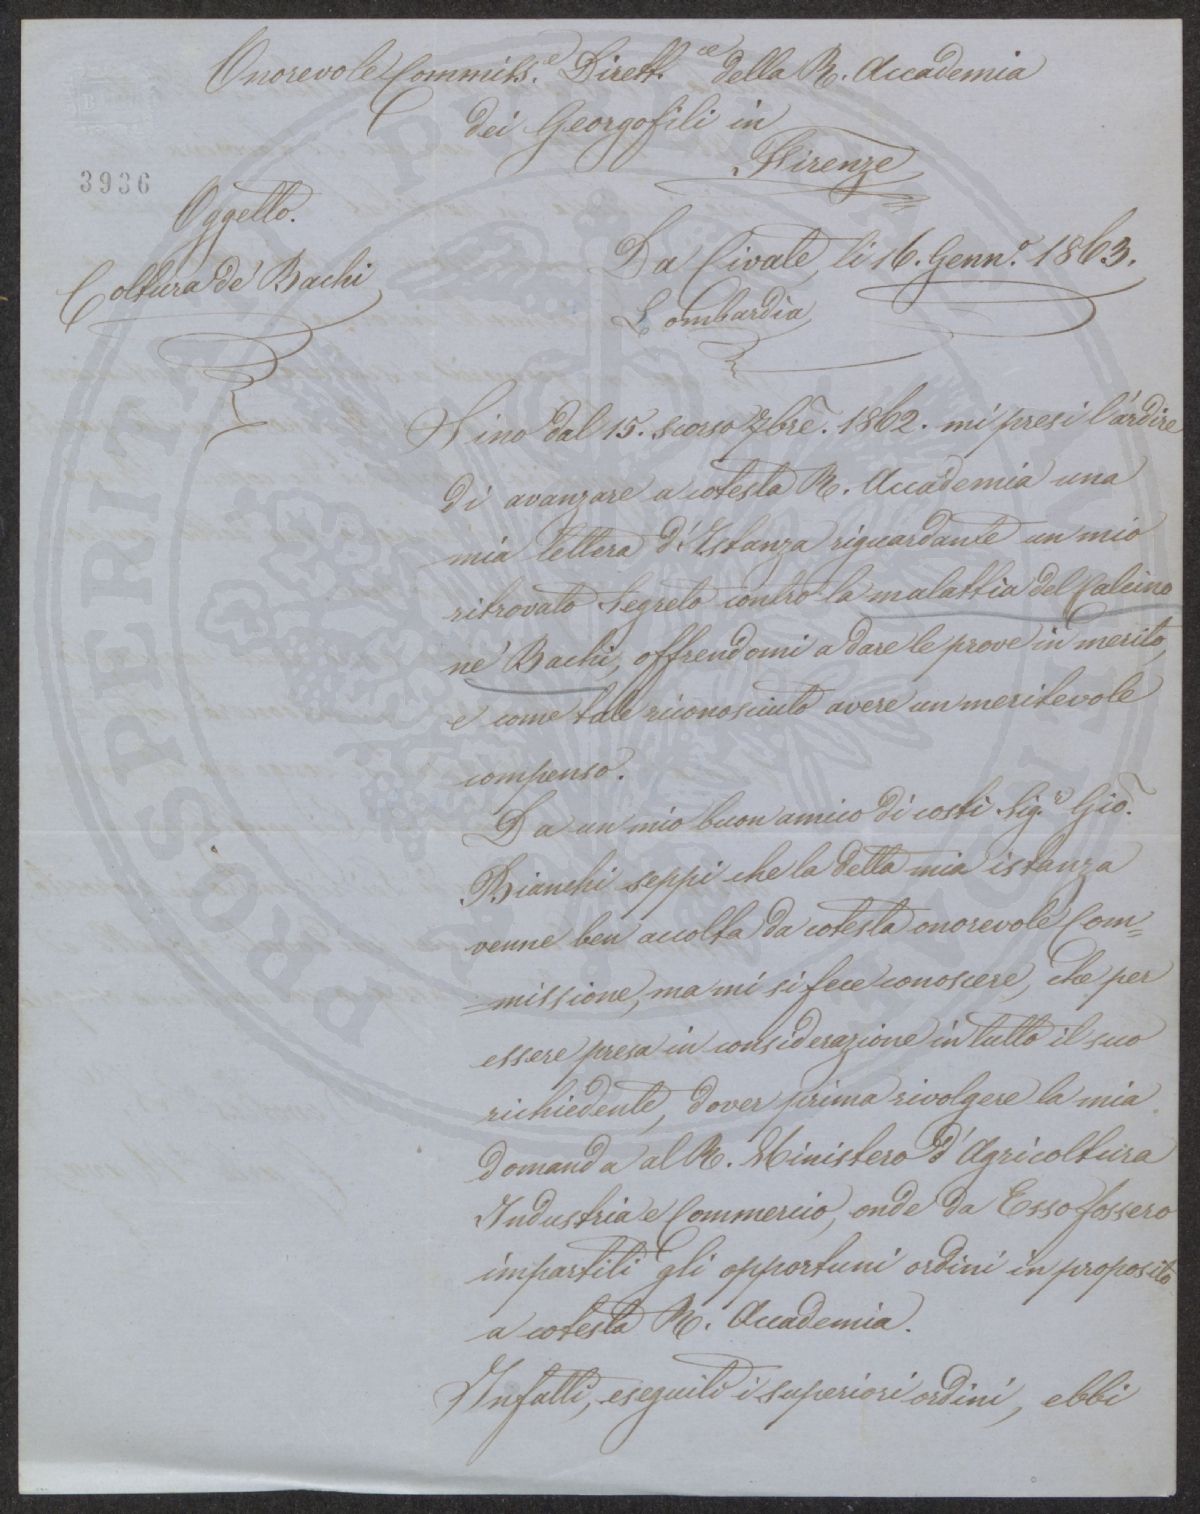 Onorevole Commiss.e Dirett.ce della R. Accademia
dei Georgofili in
Firenze
3936
Oggetto.
Coltura de' Bachi
Da Civate, li 16. Genn.o 1863.
Lombardia
Sino dal 15. scorso 7bre. 1862. mi presi l'ardire
di avanzare a cotesta R. Accademia una
mia lettera d'Istanza riguardante un mio
ritrovato segreto contro la malattia del Calcino
ne' Bachi, offrendomi a dare le prove in merito,
e come tale riconosciuto avere un meritevole
compenso.
Da un mio buon amico di costì Sig.r Gio.
Bianchi seppi che la detta mia istanza
venne ben accolta da cotesta onorevole Com=
=missione, ma mi si fece conoscere, che per
essere presa in considerazione in tutto il suo
richiedente, dover prima rivolgere la mia
domanda al R. Ministero d'Agricoltura
Industria e Commercio, onde da Esso fossero
impartiti gli opportuni ordini in proposito
a cotesta R. Accademia.
Infatti, eseguiti i superiori ordini, ebbi
PROSPERITATI PUBLICAE AUGENDAE